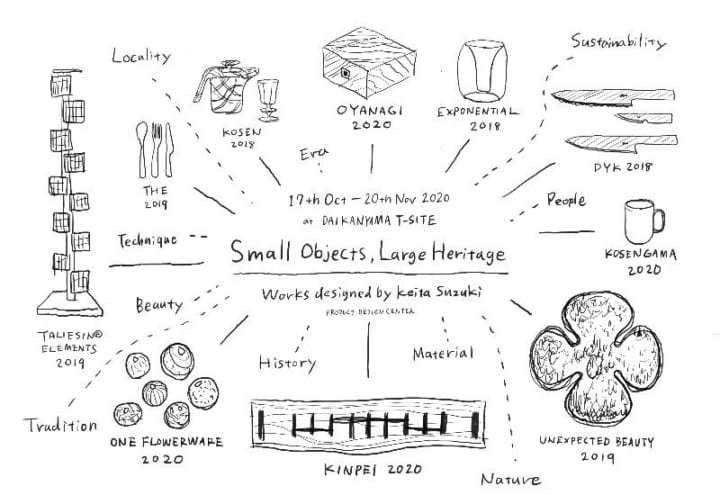 Locality
Sustainability
KOSEN
2018
OYANAGI
2020
EXPONENTIAL
2018
DYK 2018
THE
2019
Era
17th Oct – 20th Nov 2020
at DAIKANYAMA T-SITE
People
Technique
Small Objects, Large Heritage
KOSENGAMA
2020
Works designed by Keita Suzuki
PRODUCT DESIGN CENTER
Beauty
TALIESIN®
ELEMENTS
2019
History
Material
Tradition
ONE FLOWERWARE
2020
KINPEI 2020
UNEXPECTED BEAUTY
2019
Nature